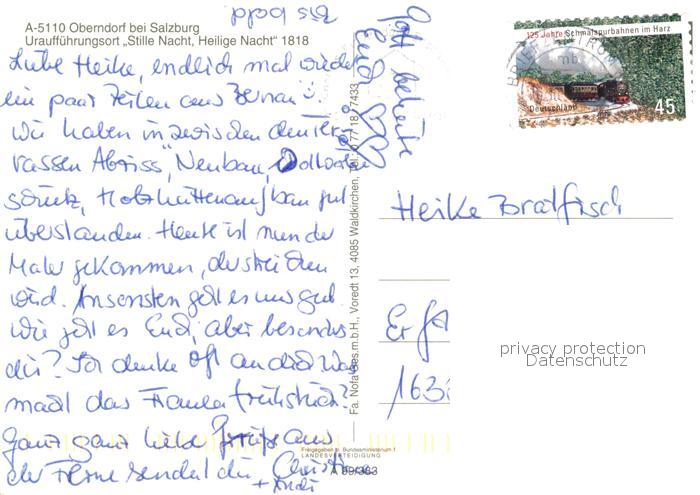 A-5110 Oberndorf bei Salzburg
Uraufführungsort „Stille Nacht, Heilige Nacht" 1818
Liebe Heike, endlich mal wieder
ein paar Zeilen aus Bernau
Wir haben inzwischen den Ter-
rassen Abriss, Neubau,
schutz, Holzhüttenaufbau gut
überstanden. Heute ist nun der
Maler gekommen, der streichen
wird. Ansonsten geht es uns gut.
Wie geht es Euch, aber besonders
dir? Ich denke oft an dich. Was
macht das Frauenfrühstück?
Ganz ganz liebe Grüße aus
der Ferne sendet dir Christiane
+ Andi
Gott behüte
Euch
Bis bald
Fa. Nofa Ges.m.b.H., Voredt 13, 4085 Waldkirchen, Tel. 0 77 18/77433
Freigegeben v. Bundesministerium f.
LANDESVERTEIDIGUNG
A 99/383
125 Jahre Schmalspurbahnen im Harz
Deutschland
45
BRIEFZENTRUM
mb
Heike Bratfisch
Erf
163
privacy protection
Datenschutz